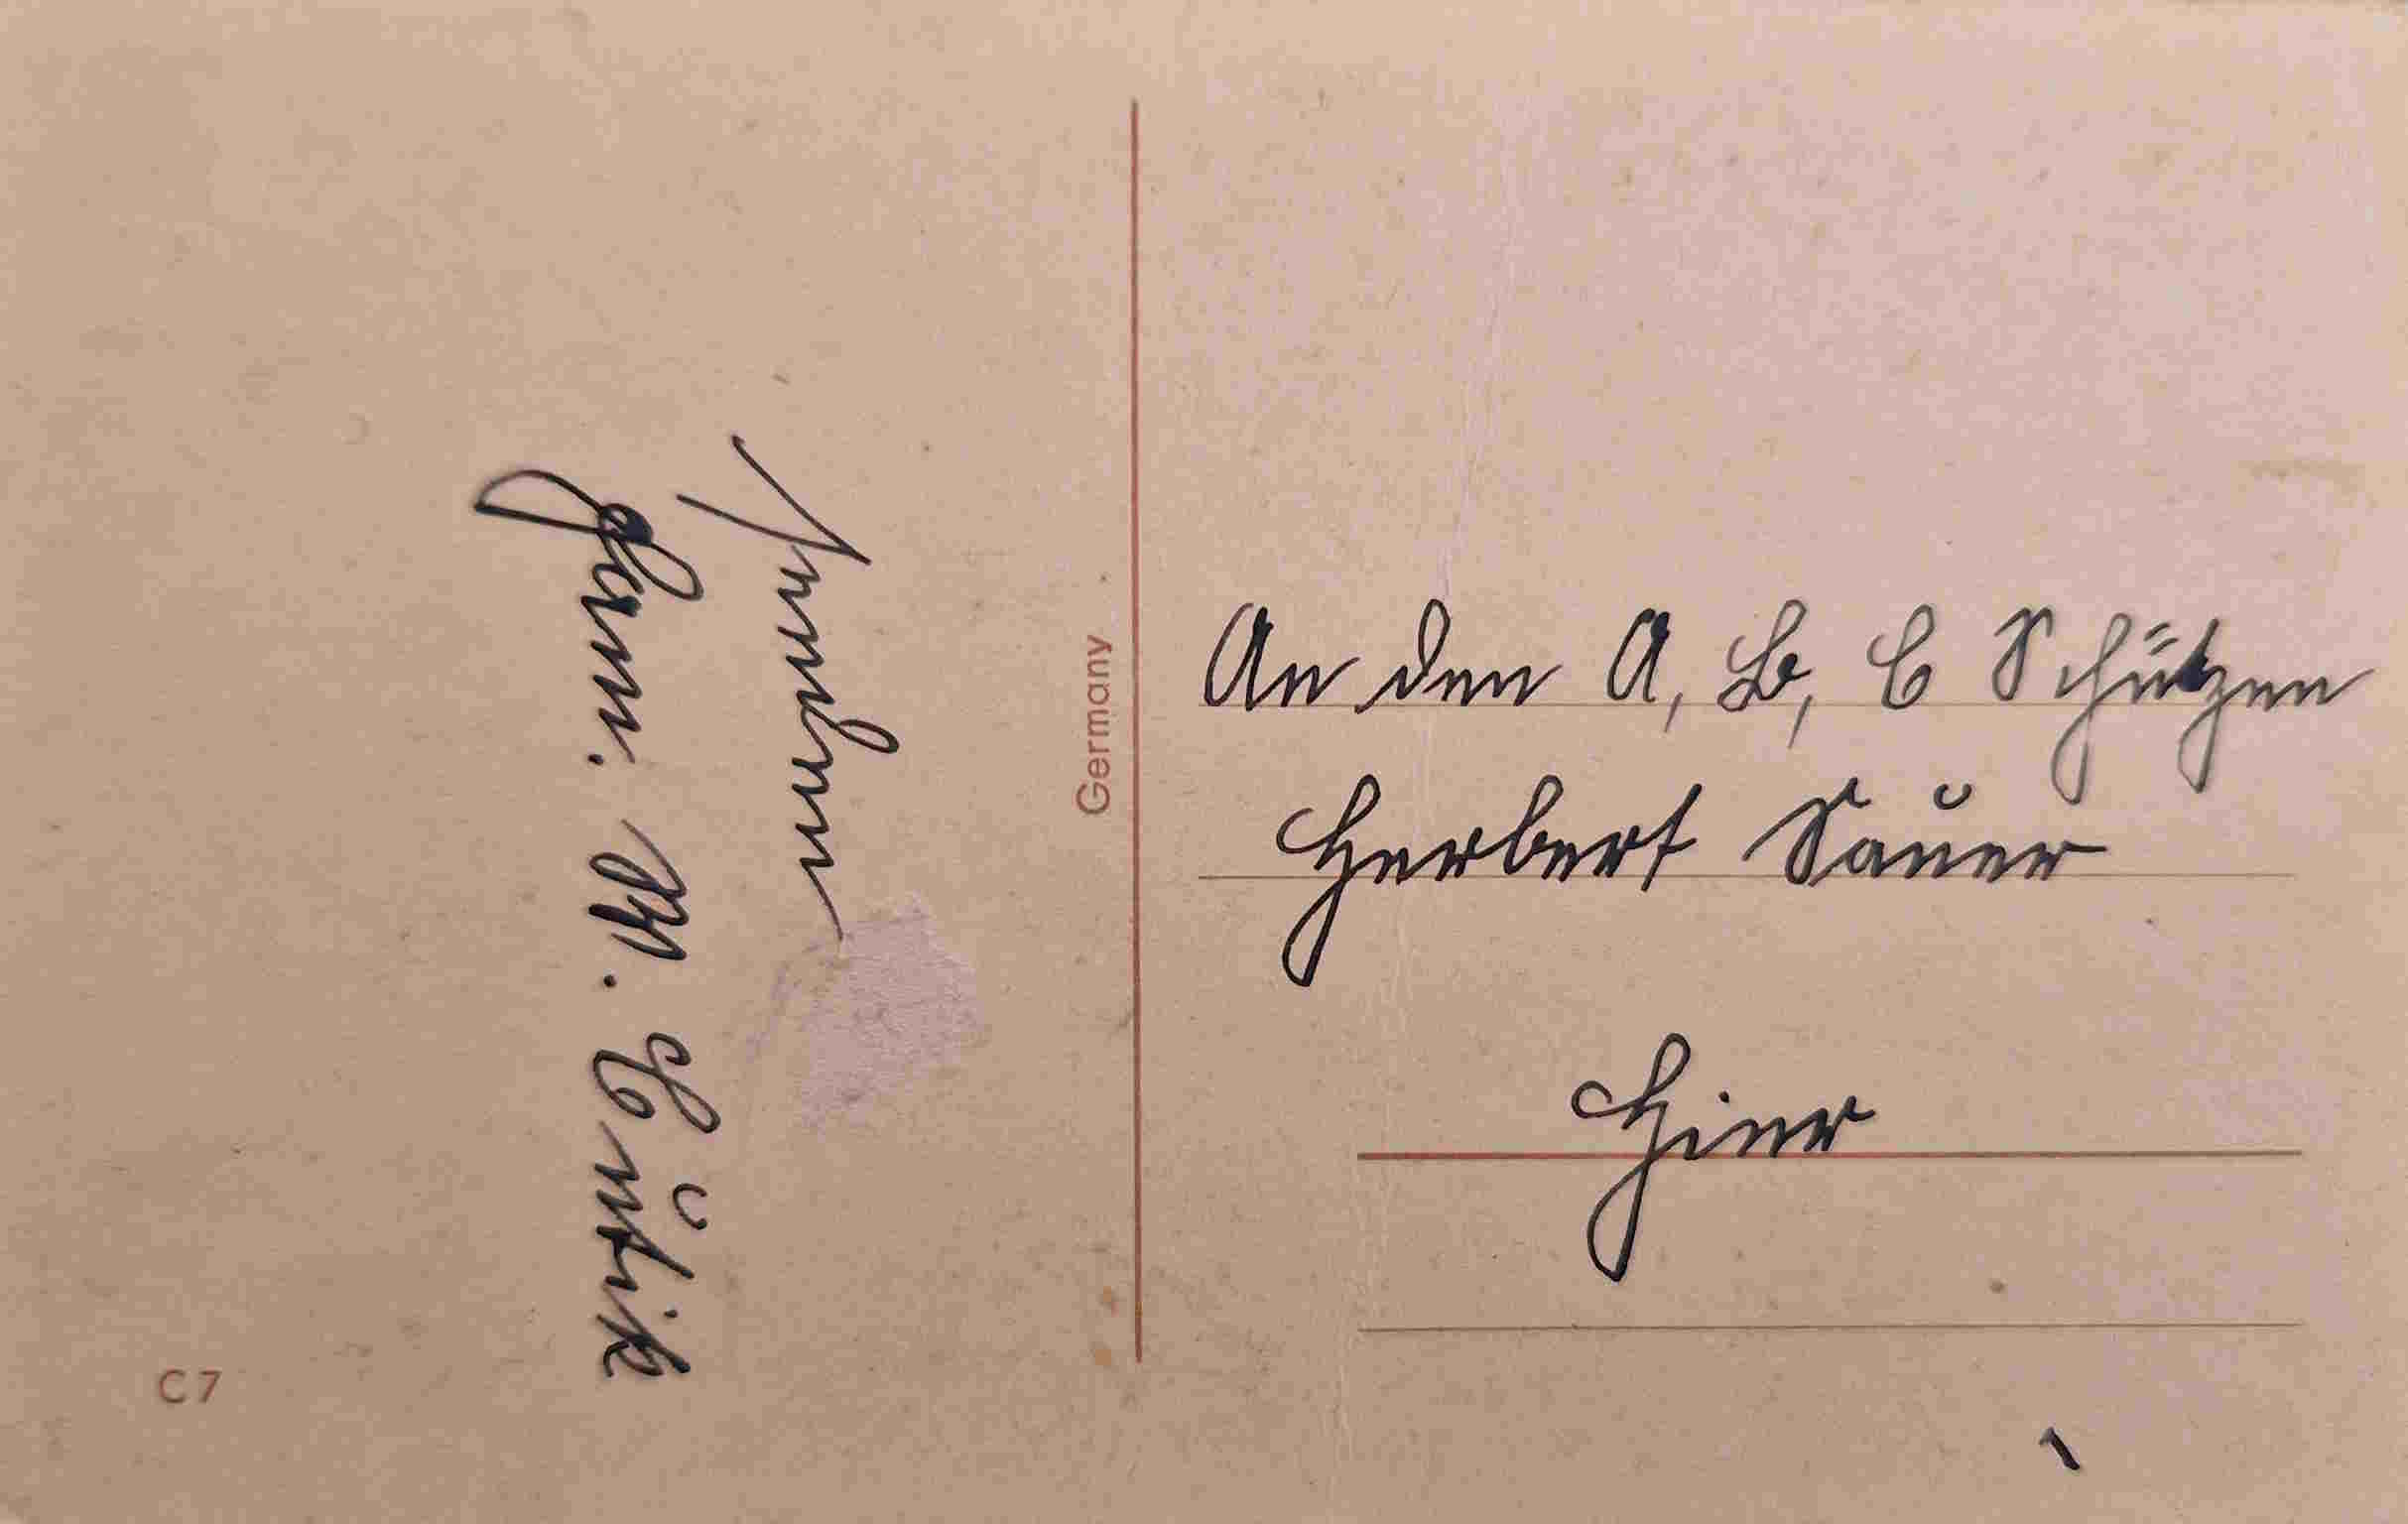 senden
Fam.
Germany
C 7
An den A, B, C Schützen
Herbert Sauer
Hier